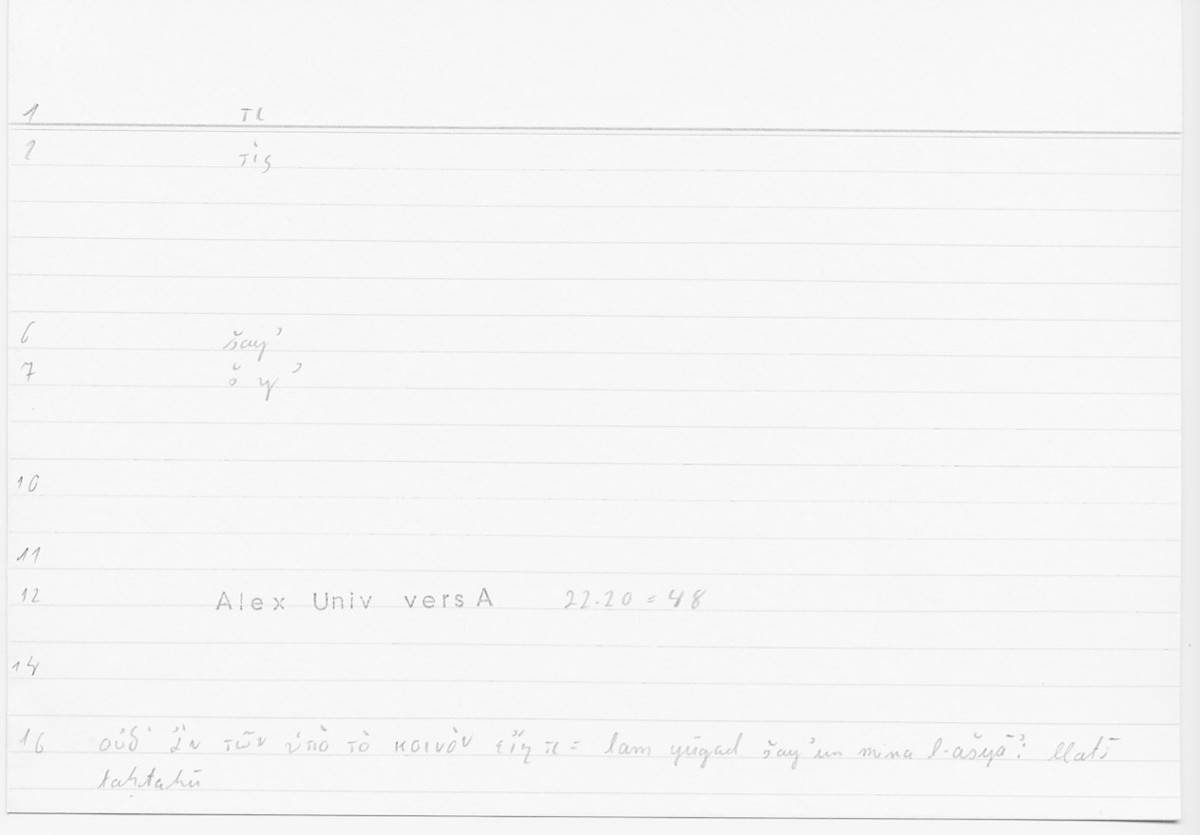 1 τι
2 τὶς
6 šayʾ
7 š y ʾ
10
11
12 Alex Univ vers A 22.20 = 48
14
16 οὐδʼ ἂν τῶν ὑπὸ τὸ κοινὸν εἴη τι = lam yūǧad šayʾun mina l-ašyāʾi llatī
taḥtahū